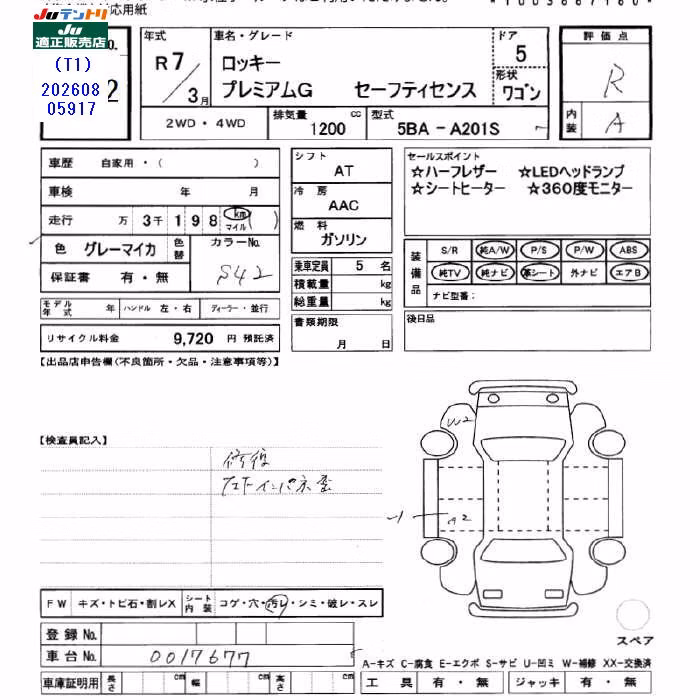 対応用紙
*1003667160*
JUテントリ
JU
適正販売店
(T1)
202608
05917
No.
2
年式
R7/3月
車名・グレード
ロッキー
プレミアムG セーフティセンス
ドア
5
形状
ワゴン
評価点
R
内装
A
2WD・4WD
排気量 cc
1200
型式
5BA - A201S
車歴 自家用・( )
車検 年 月
走行 万 3千198 km マイル ( )
色 グレーマイカ
色替
カラーNo.
S42
保証書 有・無
シフト
AT
冷房
AAC
燃料
ガソリン
乗車定員 5 名
積載量 kg
総重量 kg
セールスポイント
☆ハーフレザー ☆LEDヘッドランプ
☆シートヒーター ☆360度モニター
装備品
S/R 純A/W P/S P/W ABS
純TV 純ナビ 革シート 外ナビ エアB
ナビ型番:
モデル年式 年 ハンドル 左・右 ディーラー・並行
リサイクル料金 9,720 円 預託済
書類期限
月 日
後日品
【出品店申告欄(不良箇所・欠品・注意事項等)】
【検査員記入】
修復
W2
A2
FW キズ・トビ石・割レX シート内装 コゲ・穴・汚レ・シミ・破レ・スレ
登録No.
車台No. 0017677
スペア
A-キズ C-腐食 E-エクボ S-サビ U-凹ミ W-補修 XX-交換済
車庫証明用 長さ cm 幅 cm 高さ cm
工具 有・無 ジャッキ 有・無